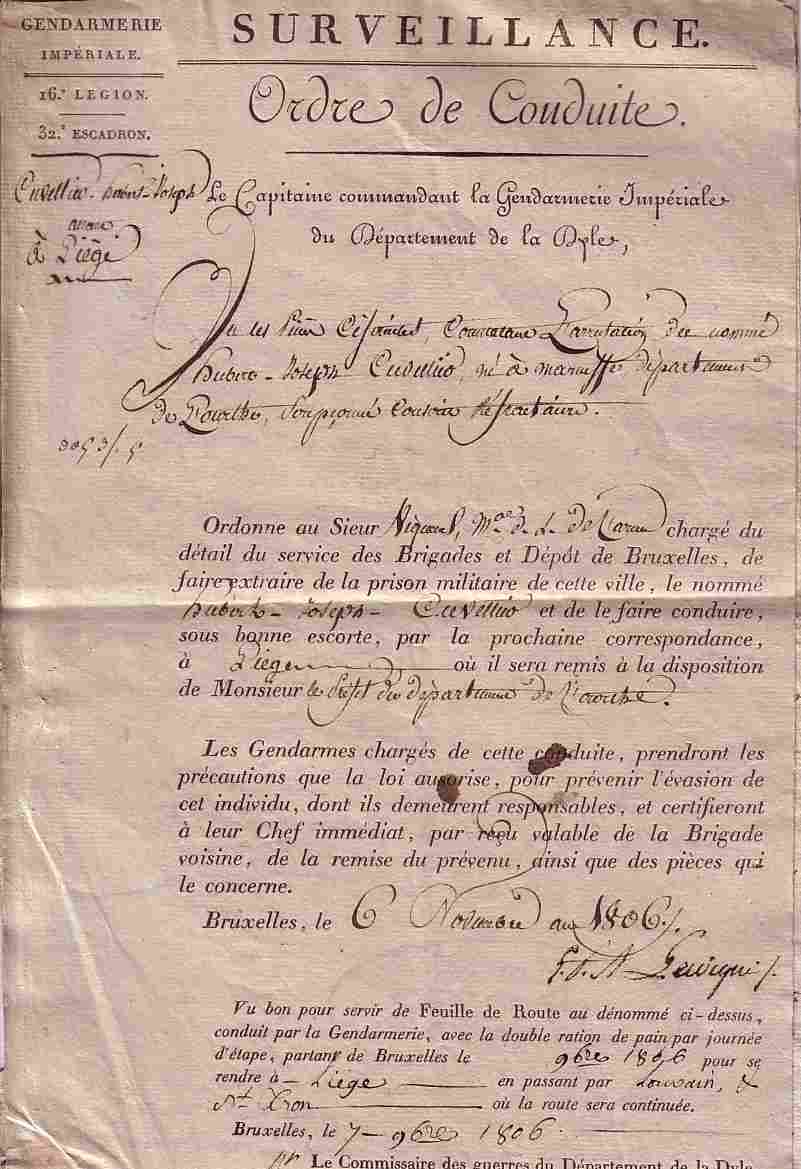 GENDARMERIE
IMPÉRIALE.
16.e LEGION.
32.e ESCADRON.
SURVEILLANCE.
Ordre de Conduite.
Cuvellier hubert-Joseph
à Liège
Le Capitaine commandant la Gendarmerie Impériale
du Département de la Dyle,
Vu les Pièces, Concernant L'arrestation du nommé
hubert-Joseph Cuvellier, né à, département
de L'ourthe, Soupçonné Conscrit Réfractaire.
Ordonne au Sieur chargé du
détail du service des Brigades et Dépôt de Bruxelles, de
faire extraire de la prison militaire de cette ville, le nommé
hubert-Joseph-Cuvellier et de le faire conduire,
sous bonne escorte, par la prochaine correspondance,
à Liège où il sera remis à la disposition
de Monsieur le Préfet du département de L'ourthe.
Les Gendarmes chargés de cette conduite, prendront les
précautions que la loi autorise, pour prévenir l'évasion de
cet individu, dont ils demeurent responsables, et certifieront
à leur Chef immédiat, par reçu valable de la Brigade
voisine, de la remise du prévenu, ainsi que des pièces qui
le concerne.
Bruxelles, le 6 Novembre an 1806.
Vu bon pour servir de Feuille de Route au dénommé ci-dessus,
conduit par la Gendarmerie, avec la double ration de pain par journée
d'étape, partant de Bruxelles le 9bre 1806 pour se
rendre à Liège en passant par Louvain, &
St. Tron où la route sera continuée.
Bruxelles, le 7 9bre 1806
pr Le Commissaire des guerres du Département de la Dyle